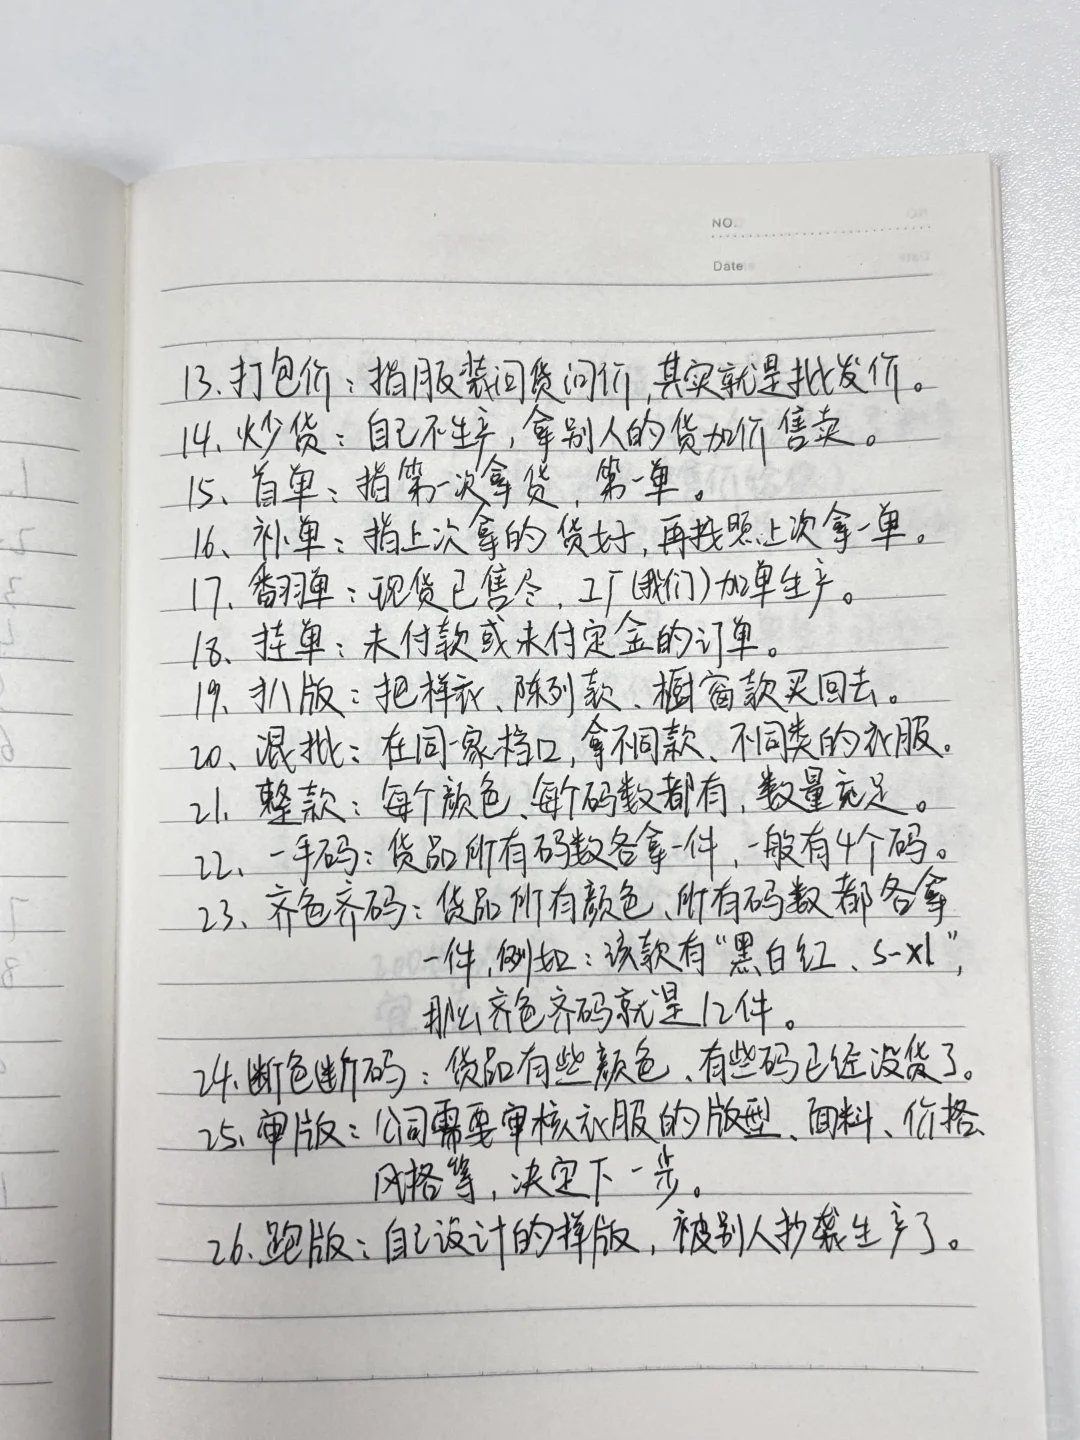 NO.
Date
13.打包价：指服装问货问价，其实就是批发价。
14、炒货：自己不生产，拿别人的货加价售卖。
15、首单：指第一次拿货，第一单。
16、补单：指上次拿的货好，再找照上次拿一单。
17、翻单：现货已售尽，工厂(我们)加单生产。
18、挂单：未付款或未付定金的订单。
19、扒版：把样衣、陈列款、橱窗款买回去。
20、混批：在同一家档口，拿不同款、不同类的衣服。
21、整款：每个颜色、每个码数都有，数量充足。
22、一手码：货品所有码数各拿一件，一般有4个码。
23、齐色齐码：货品所有颜色、所有码数都各拿
一件，例如：该款有“黑白红、S-XL”，
那么齐色齐码就是12件。
24、断色断码：货品有些颜色、有些码已经没货了。
25、审版：公司需要审核衣服的版型、面料、价格
风格等，决定下一步。
26、跑版：自己设计的样版，被别人抄袭生产了。